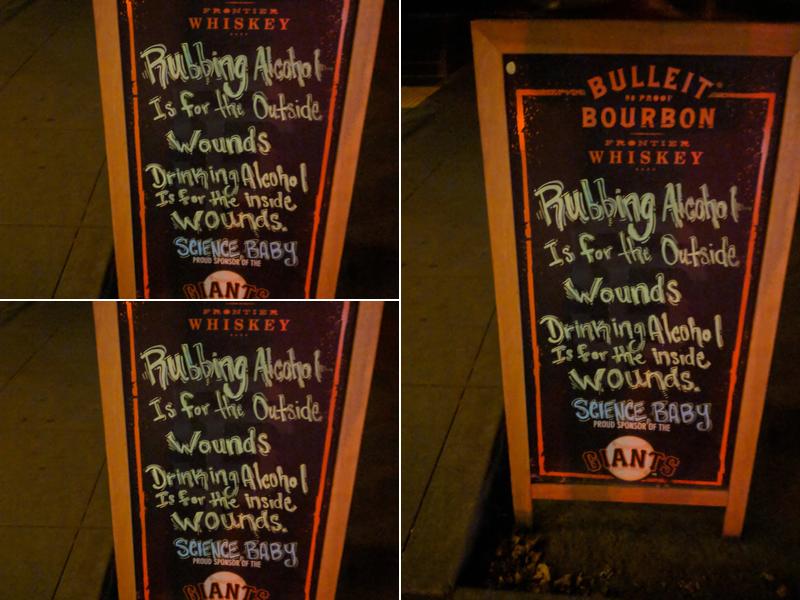 FRONTIER
WHISKEY
Rubbing Alcohol
Is for the Outside
Wounds
Drinking Alcohol
Is for the inside
Wounds.
SCIENCE, BABY
PROUD SPONSOR OF THE
GIANTS
FRONTIER
WHISKEY
Rubbing Alcohol
Is for the Outside
Wounds
Drinking Alcohol
Is for the inside
Wounds.
SCIENCE, BABY
PROUD SPONSOR OF THE
GIANTS
BULLEIT
90 PROOF
BOURBON
FRONTIER
WHISKEY
Rubbing Alcohol
Is for the Outside
Wounds
Drinking Alcohol
Is for the inside
Wounds.
SCIENCE, BABY
PROUD SPONSOR OF THE
GIANTS